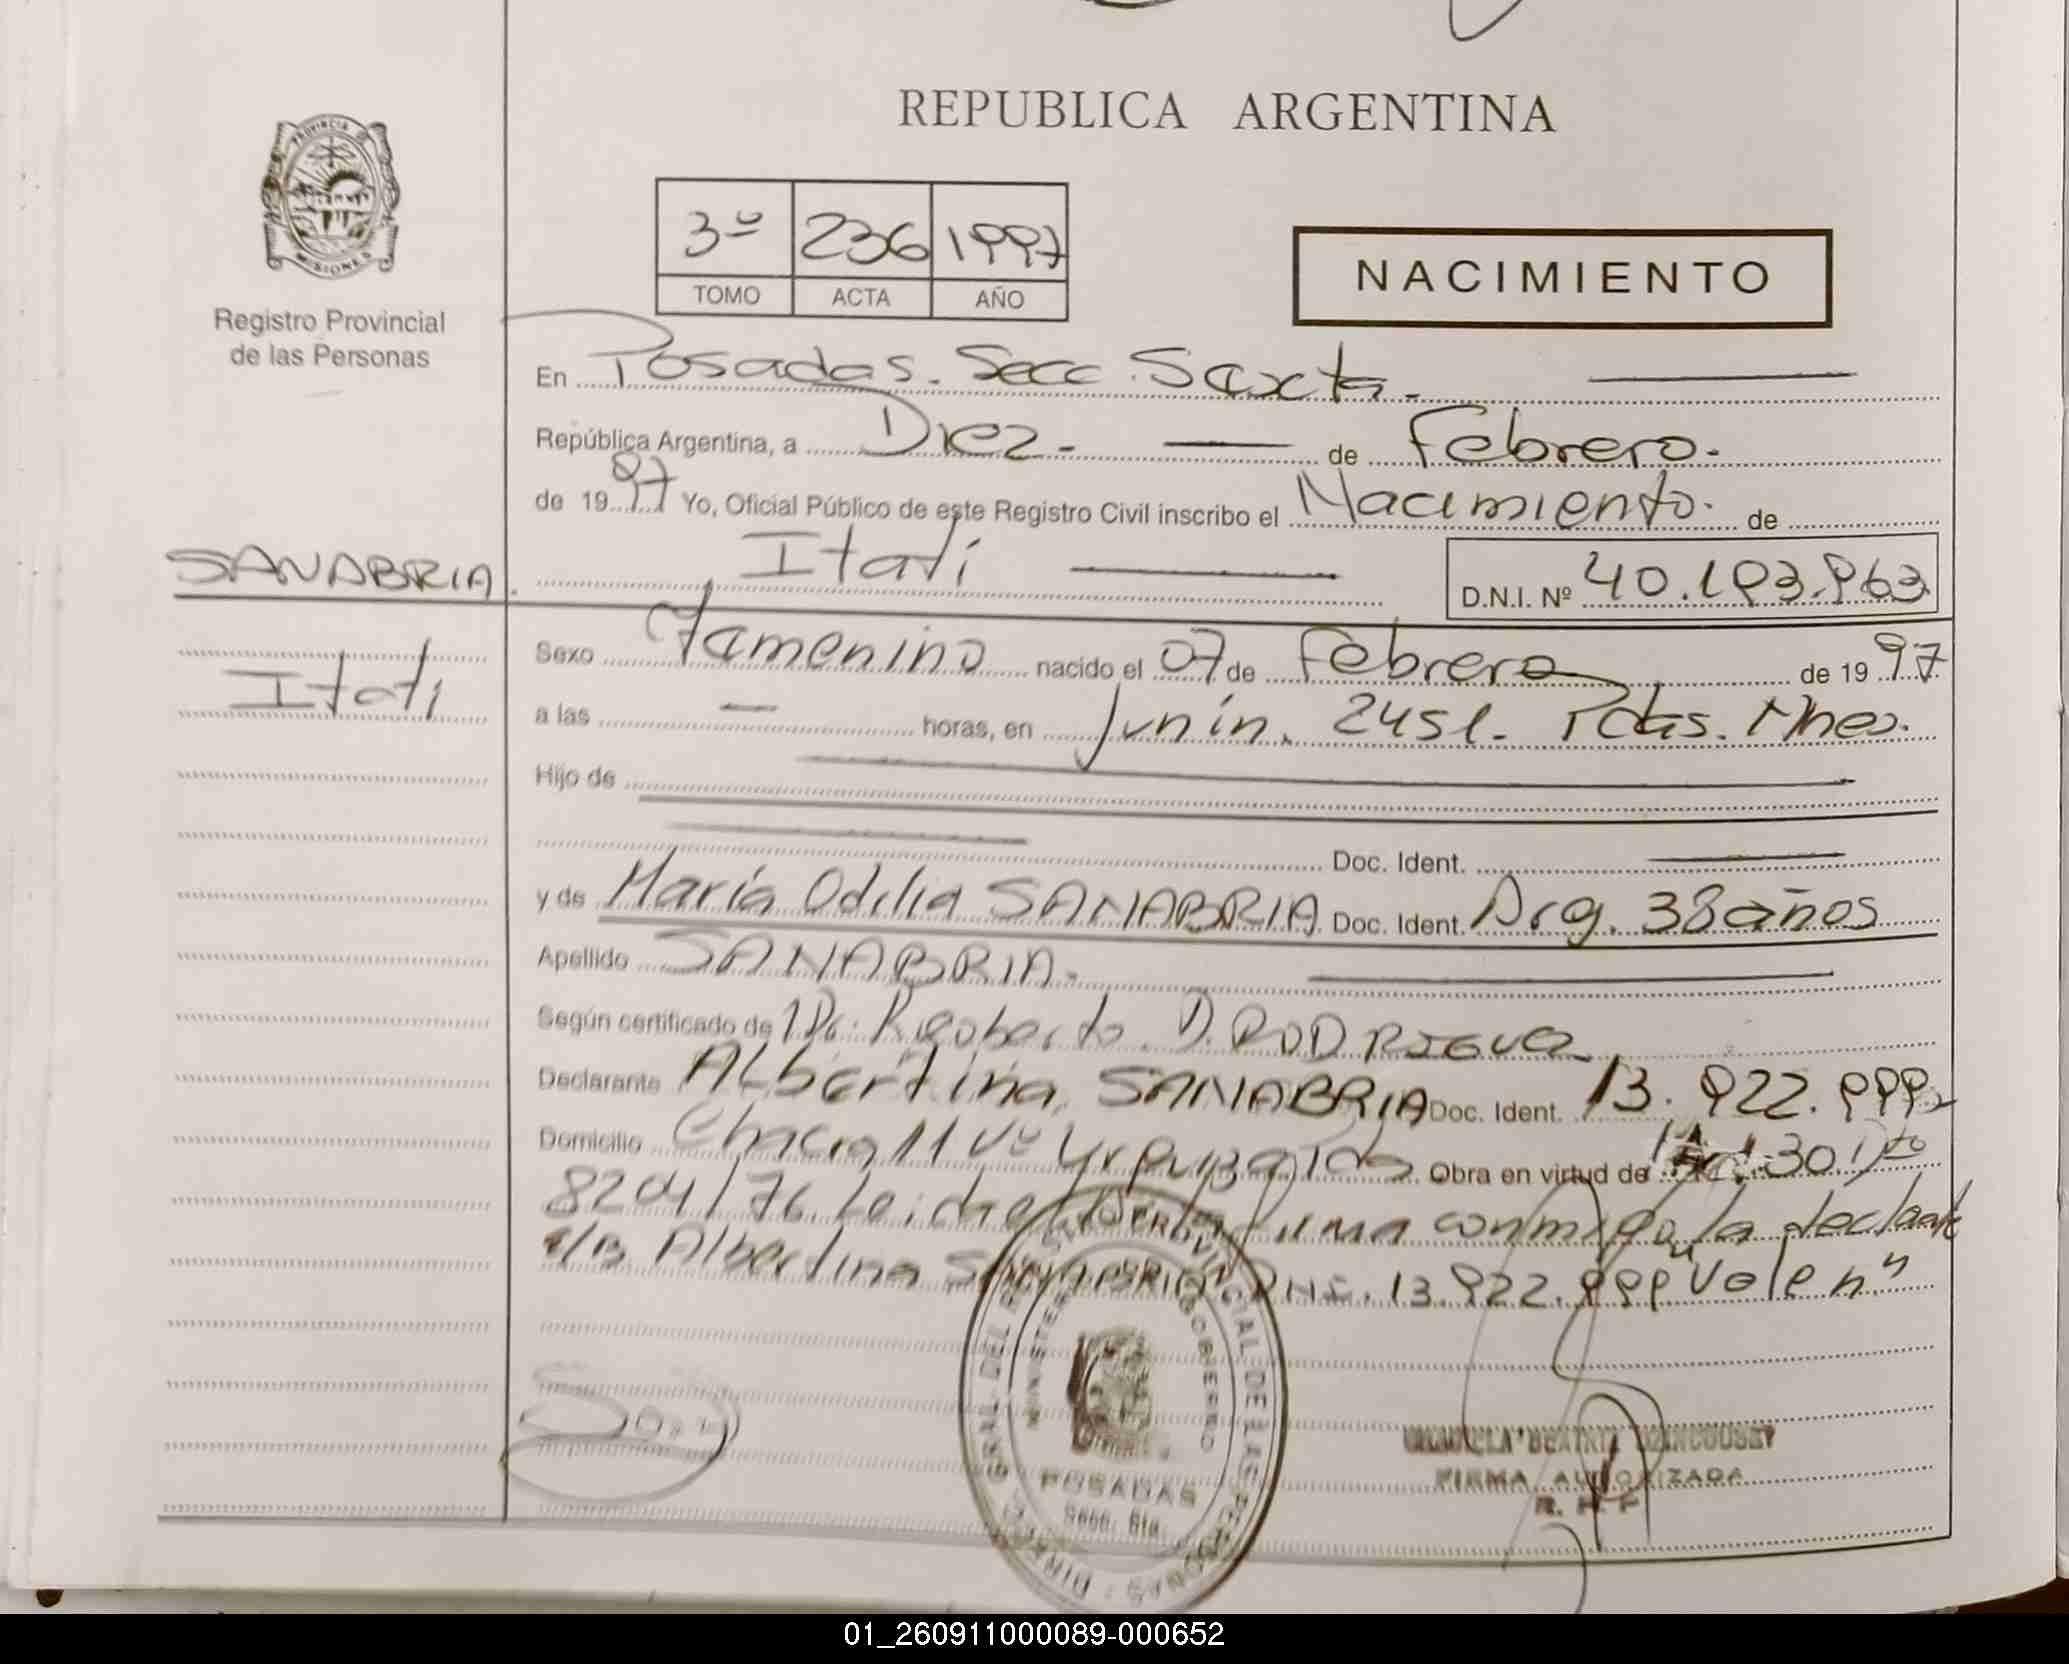 REPUBLICA ARGENTINA
PROVINCIA
MISIONES
Registro Provincial
de las Personas
3º 236 1997
TOMO ACTA AÑO
NACIMIENTO
En Posadas. Secc. Sexta.
República Argentina, a Diez - de Febrero.
de 1997 Yo, Oficial Público de este Registro Civil inscribo el Nacimiento. de
SANABRIA. Itatí D.N.I. Nº 40.193.963
Itatí
Sexo Femenino nacido el 07 de Febrero de 1997
a las — horas, en Junín. 2451. Pdas. Mnes.
Hijo de
Doc. Ident.
y de María Odilia SANABRIA Doc. Ident. Arg. 38 años
Apellido SANABRIA.
Según certificado de Rigoberto D. RODRIGUEZ
Declarante Albertina SANABRIA Doc. Ident. 13.922.999
Domicilio Chacra 11 Obra en virtud de 30 Dto
8204/76. Leída el firma conmigo la declarante
Albertina SANABRIA DNI. 13.922.999 "Vale n"
POSADAS
Secc. 6ta.
FIRMA AUTORIZADA
01_260911000089-000652